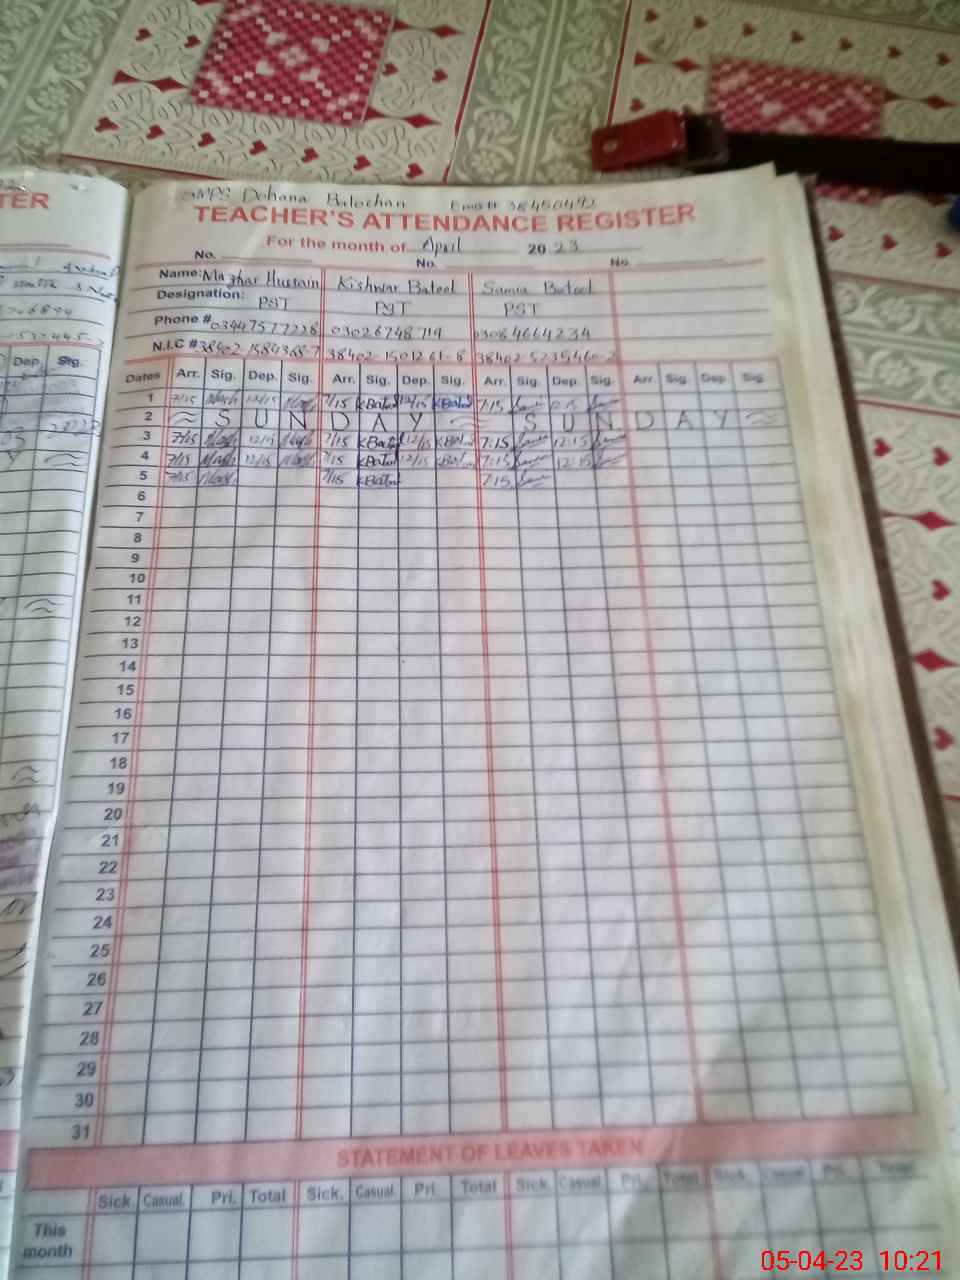 GMPS Dohana Balochan Emis# 38450492
TEACHER'S ATTENDANCE REGISTER
For the month of April 2023
No. No. No.
Name: Mazhar Hussain Kishwar Batool Samia Batool
Designation: PST PST PST
Phone # 03447577228 03026748719 03084664234
N.I.C # 38402-1584368-7 38402-1501261-8 38402-5235460-2
Dates Arr. Sig. Dep. Sig. Arr. Sig. Dep. Sig. Arr. Sig. Dep. Sig. Arr. Sig. Dep. Sig.
1 7/15 12/15 7/15 KBatol 12/15 KBatol 7:15 12:15
2 S U N D A Y S U N D A Y
3 7/15 12/15 7/15 KBatol 12/15 KBatol 7:15 12:15
4 7/15 12/15 7/15 KBatol 12/15 KBatol 7:15 12:15
5 7/15 7/15 KBatol 7:15
6
7
8
9
10
11
12
13
14
15
16
17
18
19
20
21
22
23
24
25
26
27
28
29
30
31
STATEMENT OF LEAVES TAKEN
Sick. Casual. Pri. Total Sick. Casual. Pri Total Sick. Casual. Pri. Total Sick. Casual Pri. Total
This
month
TER
Dep. Sig.
05-04-23 10:21